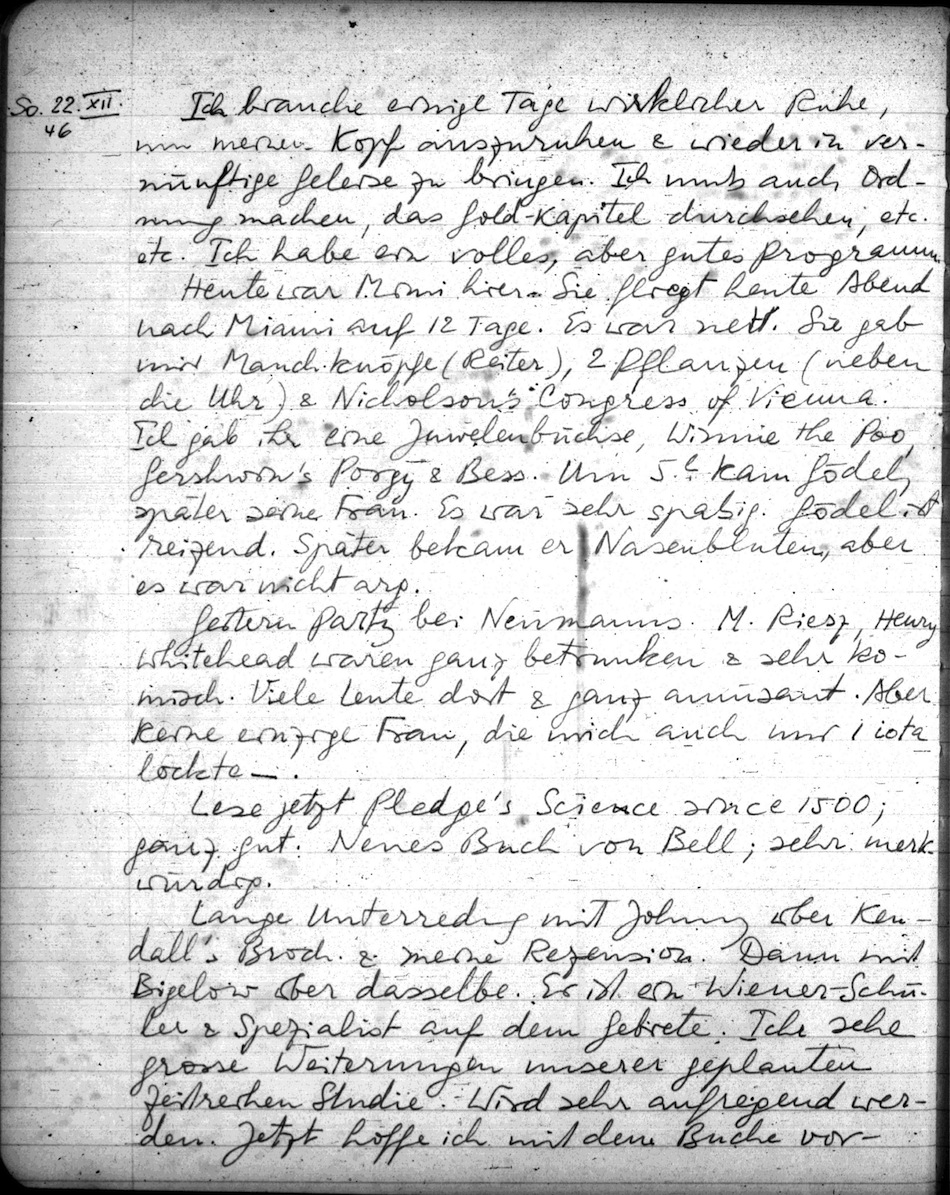 So. 22. XII. Ich brauche einige Tage wirklicher Ruhe,
46 um meinen Kopf auszuruhen & wieder in ver-
nünftige Geleise zu bringen. Ich muss auch Ord-
nung machen, das Gold-Kapitel durchsehen, etc.
etc. Ich habe ein volles, aber gutes Programm.
Heute war Mimi hier. Sie fliegt heute Abend
nach Miami auf 12 Tage. Es war nett. Sie gab
mir Manch.knöpfe (Reiter), 2 Pflanzen (neben
die Uhr) & Nicholson's Congress of Vienna.
Ich gab ihr eine Juwelenbüchse, Winnie the Poo,
Gershwin's Porgy & Bess. Um 5h kam Gödel,
später seine Frau. Es war sehr spaßig. Gödel ist
reizend. Später bekam er Nasenbluten, aber
es war nicht arg.
Gestern Party bei Neumanns. M. Riesz, Henry
Whitehead waren ganz betrunken & sehr ko-
misch. Viele Leute dort & ganz amüsant. Aber
keine einzige Frau, die mich auch nur 1 iota
lockte —.
Lese jetzt Pledge's Science since 1500;
ganz gut. Neues Buch von Bell; sehr merk-
würdig.
Lange Unterredung mit Johnny über Ken-
dall's Broch. & meine Rezension. Dann mit
Bigelow über dasselbe. Er ist ein Wiener-Schü-
ler & Spezialist auf dem Gebiete. Ich sehe
grosse Weiterungen unserer geplanten
Zeitreihen Studie. Wird sehr aufregend wer-
den. Jetzt hoffe ich mit dem Buche vor-